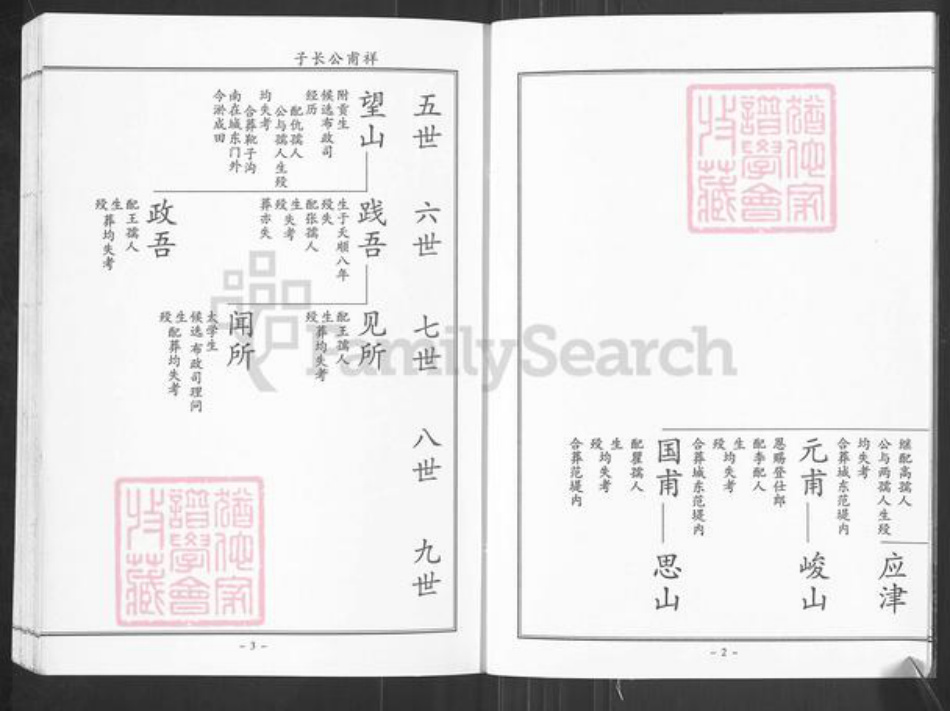 继配高孺人
公与两孺人生殁
均失考
合葬城东范堤内
应津
元甫
峻山
恩赐登仕郎
配李配人
生
殁均失考
合葬城东范堤内
国甫
思山
配瞿孺人
生
殁均失考
合葬范堤内
- 2 -
子长公甫祥
五世
望山
附贡生
候选布政司
经历
配仇孺人
公与孺人生殁
均失考
合葬靴子沟
南在城东门外
今淤成田
六世
践吾
生于天顺八年
殁失
配张孺人
生失考
殁
葬亦失
政吾
配王孺人
生
殁葬均失考
七世
见所
配王孺人
生
殁葬均失考
闻所
太学生
候选布政司理问
生
殁配葬均失考
八世
九世
- 3 -
FamilySearch